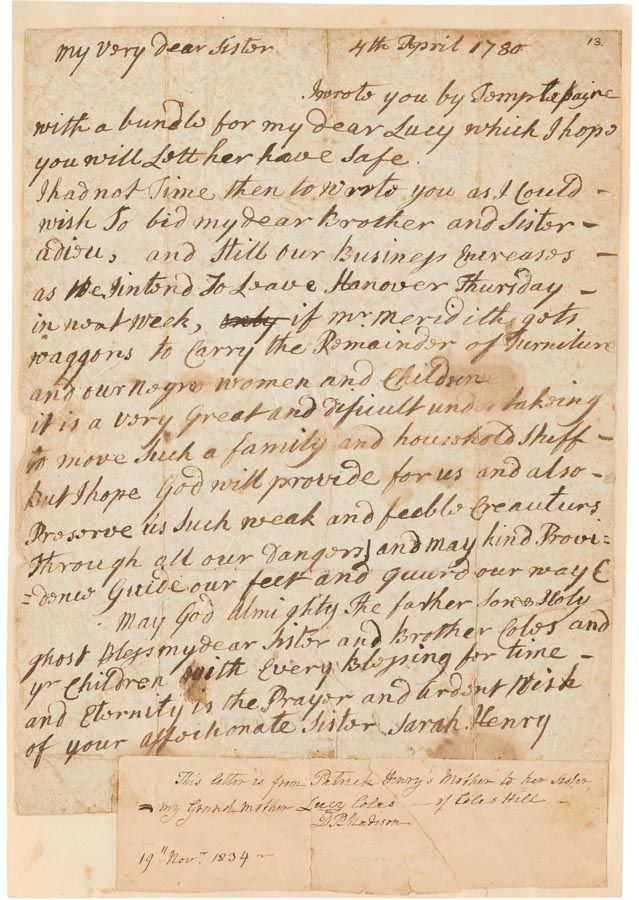 my very dear Sister 4th April 1780
13.
I wrote you by Temple payne
with a bundle for my dear Lucy which I hope
you will Lett her have safe.
I had not Time then to wrote you as I Could –
wish To bid my dear Brother and Sister –
adieu, and still our Business Increases –
as We Intend To Leave Hanover Thursday –
in next week, only if mr. meridith gets
waggons to Carry the Remainder of Furniture
and our negro women and Children
it is a very Great and dificult undertakeing
to move such a family and household stuff –
But I hope God will provide for us and also –
Preserve us such weak and feeble Creauturs
Through all our Dangers, and may kind Provi=
=dence Guide our feet and guard our way
May God almighty The father son & Holy
ghost Bless my dear Sister and Brother Coles and
yr Children with Every Blessing for time –
and Eternity is the Prayer and ardent Wish
of your affectionate Sister Sarah Henry
This letter is from Patrick Henry's Mother to her sister,
my Grand mother Lucy Coles – of Coles Hill –
D P Madison
19th Novr 1834